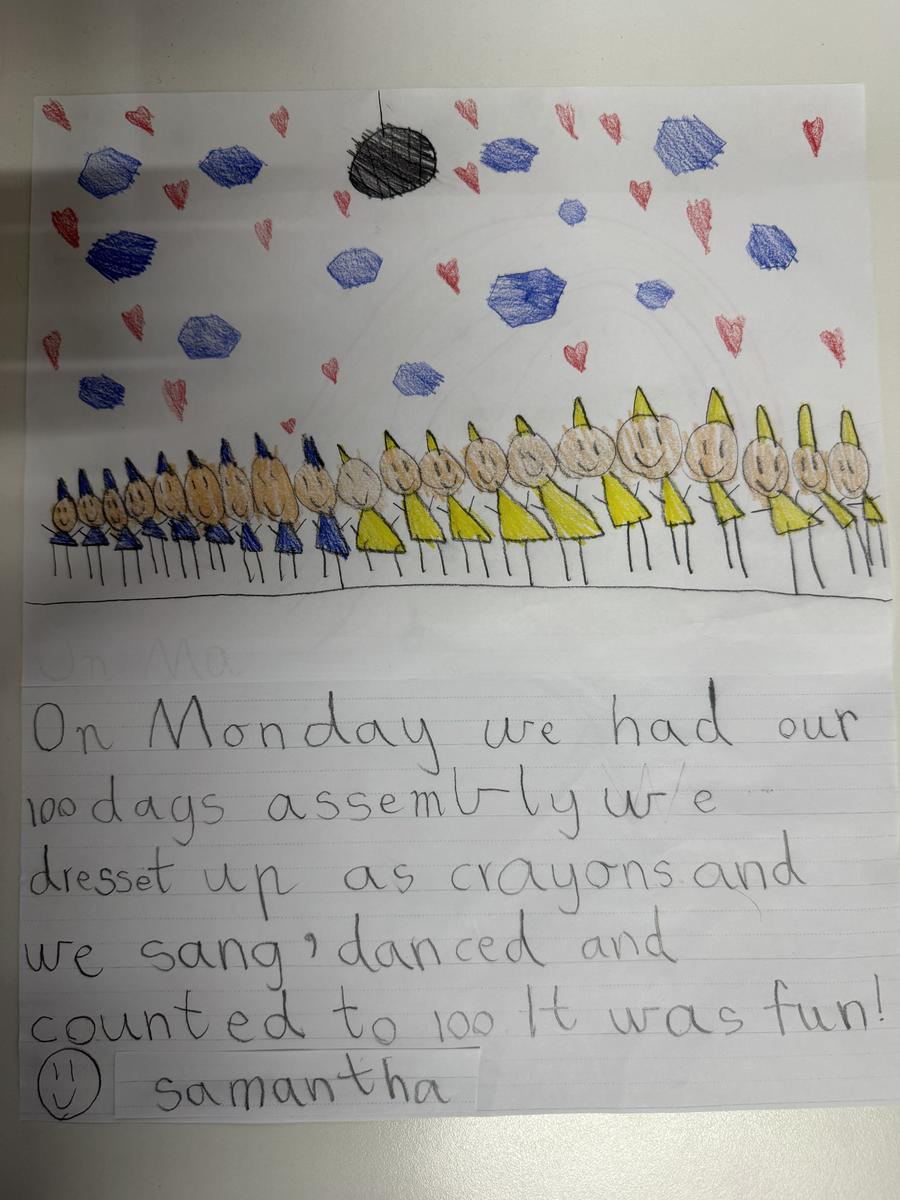 On Ma
On Monday we had our
100 days assembly We
dresset up as crayons and
we sang, danced and
counted to 100 It was fun!
samantha